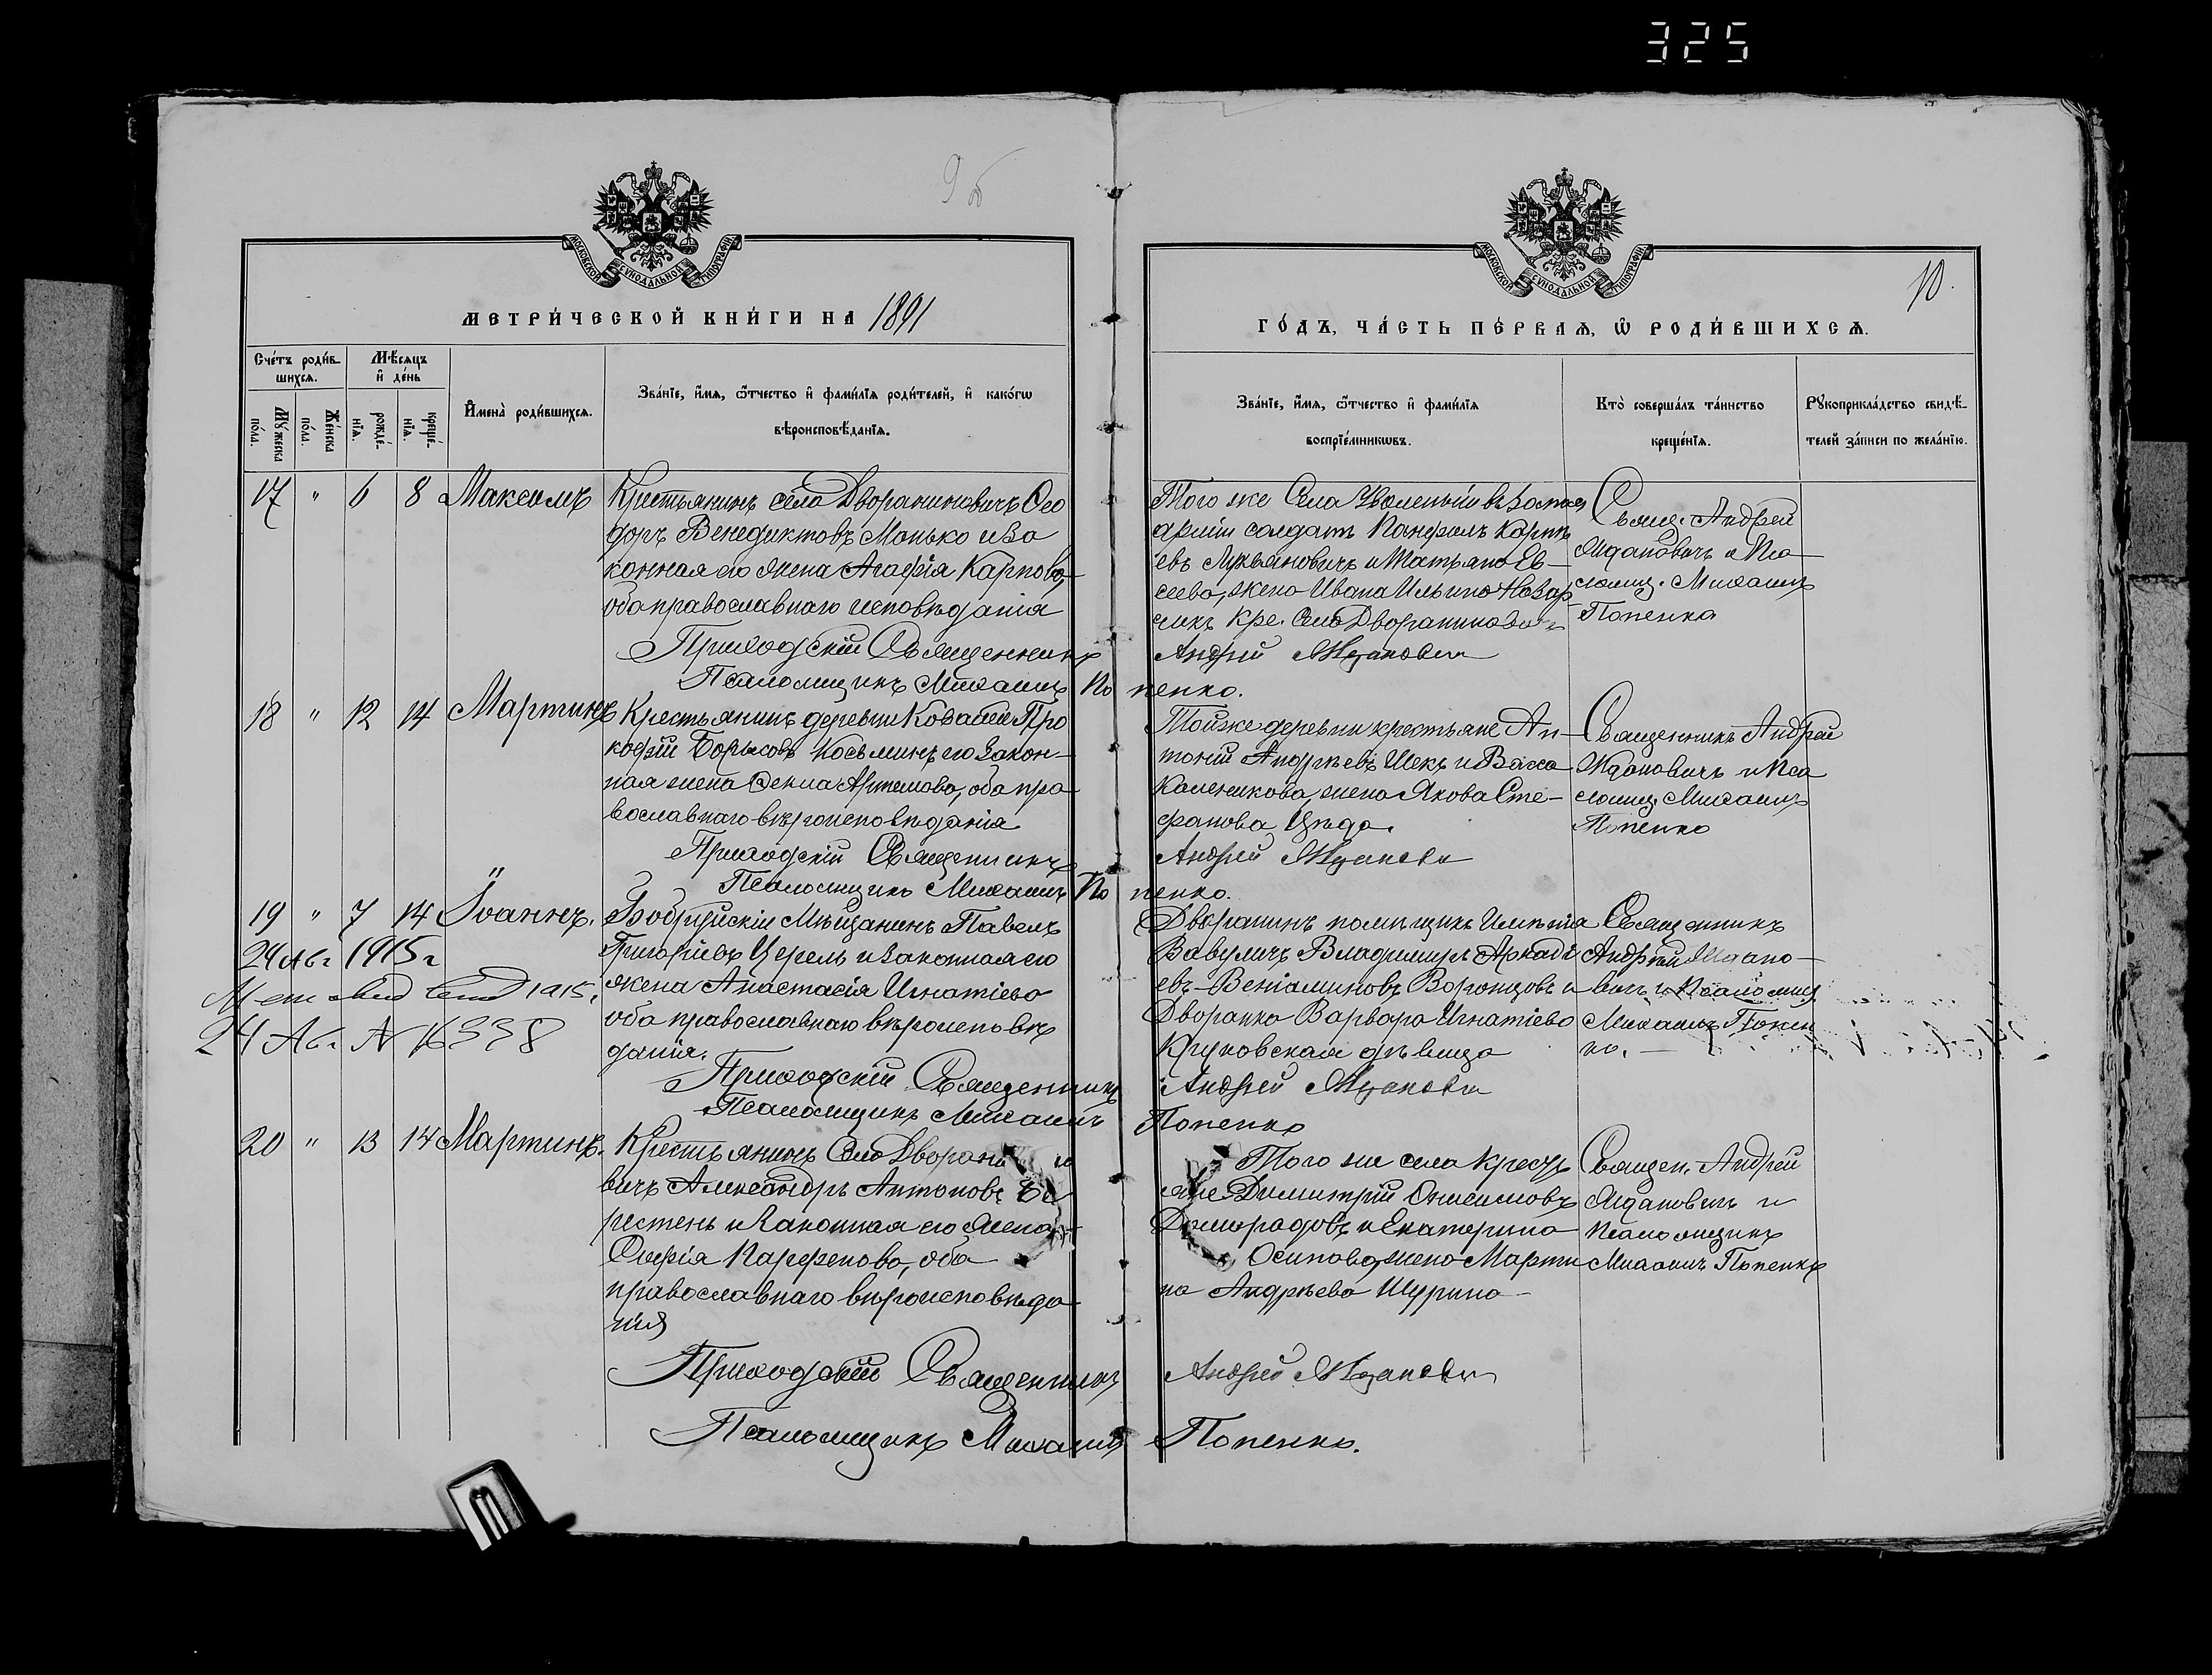 325
9б
МОСКОВСКОЙ СѴНОДАЛЬНОЙ ТИПОГРАФІИ
МЕТРИ́ЧЕСКОЙ КНИ́ГИ НА 1891
Сче́тъ роди́вшихсѧ.
Мѣ́сѧцъ и҆ де́нь
И҆мена̀ роди́вшихсѧ.
Зва́нїе, и҆́мѧ, ѿ́чество и҆ фами́лїѧ роди́телей, и҆ како́гѡ
вѣроисповѣ́данїѧ.
Мꙋ́жеска по́ла.
Же́нска по́ла.
рожде́нїѧ.
креще́нїѧ.
17 " 6 8 Максимъ
Крестьянинъ села Дворниновичъ Ѳео
доръ Венедиктовъ Монько и за
конная его жена Агафія Карпова,
оба православнаго исповѣданія
Приходскій Священникъ
Псаломщикъ Михаилъ По
18 " 12 14 Мартинъ
Крестьянинъ деревни Ковалей Про
кофій Борисовъ Косьминъ его закон-
ная жена Ѳекла Артемова, оба пра
вославнаго вѣроисповѣданія
Приходскій Священникъ
Псаломщикъ Михаилъ По
19 " 7 14 Іоаннъ.
Бобруйскій Мѣщанинъ Павелъ
Григоріевъ Церель и законная его
жена Анастасія Игнатіева
оба православнаго вѣроисповѣ
данія.
24 Авг 1915 г
1915,
24 Авг № 16338
Приходскій Священникъ
Псаломщикъ Михаилъ
20 " 13 14 Мартинъ.
Крестьянинъ Села Дворани
вичъ Александръ Антоновъ
рестень и Законная его Жена
Софія Парфенова, оба
православнаго вѣроисповѣда
нія
Приходскій Священникъ
Псаломщикъ Михаилъ
МОСКОВСКОЙ СѴНОДАЛЬНОЙ ТИПОГРАФІИ
10.
ГО́ДЪ, ЧА́СТЬ ПЕ́РВАѦ, Ѡ҆ РОДИ́ВШИХСѦ.
Зва́нїе, и҆́мѧ, ѿ́чество и҆ фами́лїѧ
воспрїе́мникѡвъ.
Кто̀ соверша́лъ та́инство
креще́нїѧ.
Рꙋкоприкла́дство свидѣ́-
телей за́писи по жела́нїю.
Того же Села Уволеный въ Запас
арміи солдатъ Панфилъ Карпѣ
евъ Лукьяновичъ и Татьяна Ев-
сеева, жена Ивана Ильина
Кре. Села
Андрей Ждановичъ
пенко.
Свящ. Андрей
Ждановичъ и Пса
ломщ. Михаилъ
Попенко
Той же деревни крестьяне Ан-
тоній Андреевъ Шекъ и Васса
Каленикова, жена Якова Сте-
фанова Цыда.
Андрей Ждановичъ
пенко.
Священникъ Андрей
Ждановичъ и Пса
ломщ. Михаилъ
Попенко
Дворанинъ помѣщикъ Имѣнія
Вавуличъ Владимиръ Аркаді
евъ-Веніаминовъ Воронцовъ и
Дворанка Варвара Игнатіева
Круковская дѣвица
Андрей Ждановичъ
Попенко
Священникъ
Андрей Ждано-
вичъ и Псаломщ
Михаилъ Попен
ко.
Того же села крестъ
яне Димитрій Онисимовъ
Доморадовъ и Екатерина
Осипова, жена Марти
на Андреева Шурина
Андрей Ждановичъ
Попенко.
Священ. Андрей
Ждановичъ и
Псаломщикъ
Михаилъ Попенко